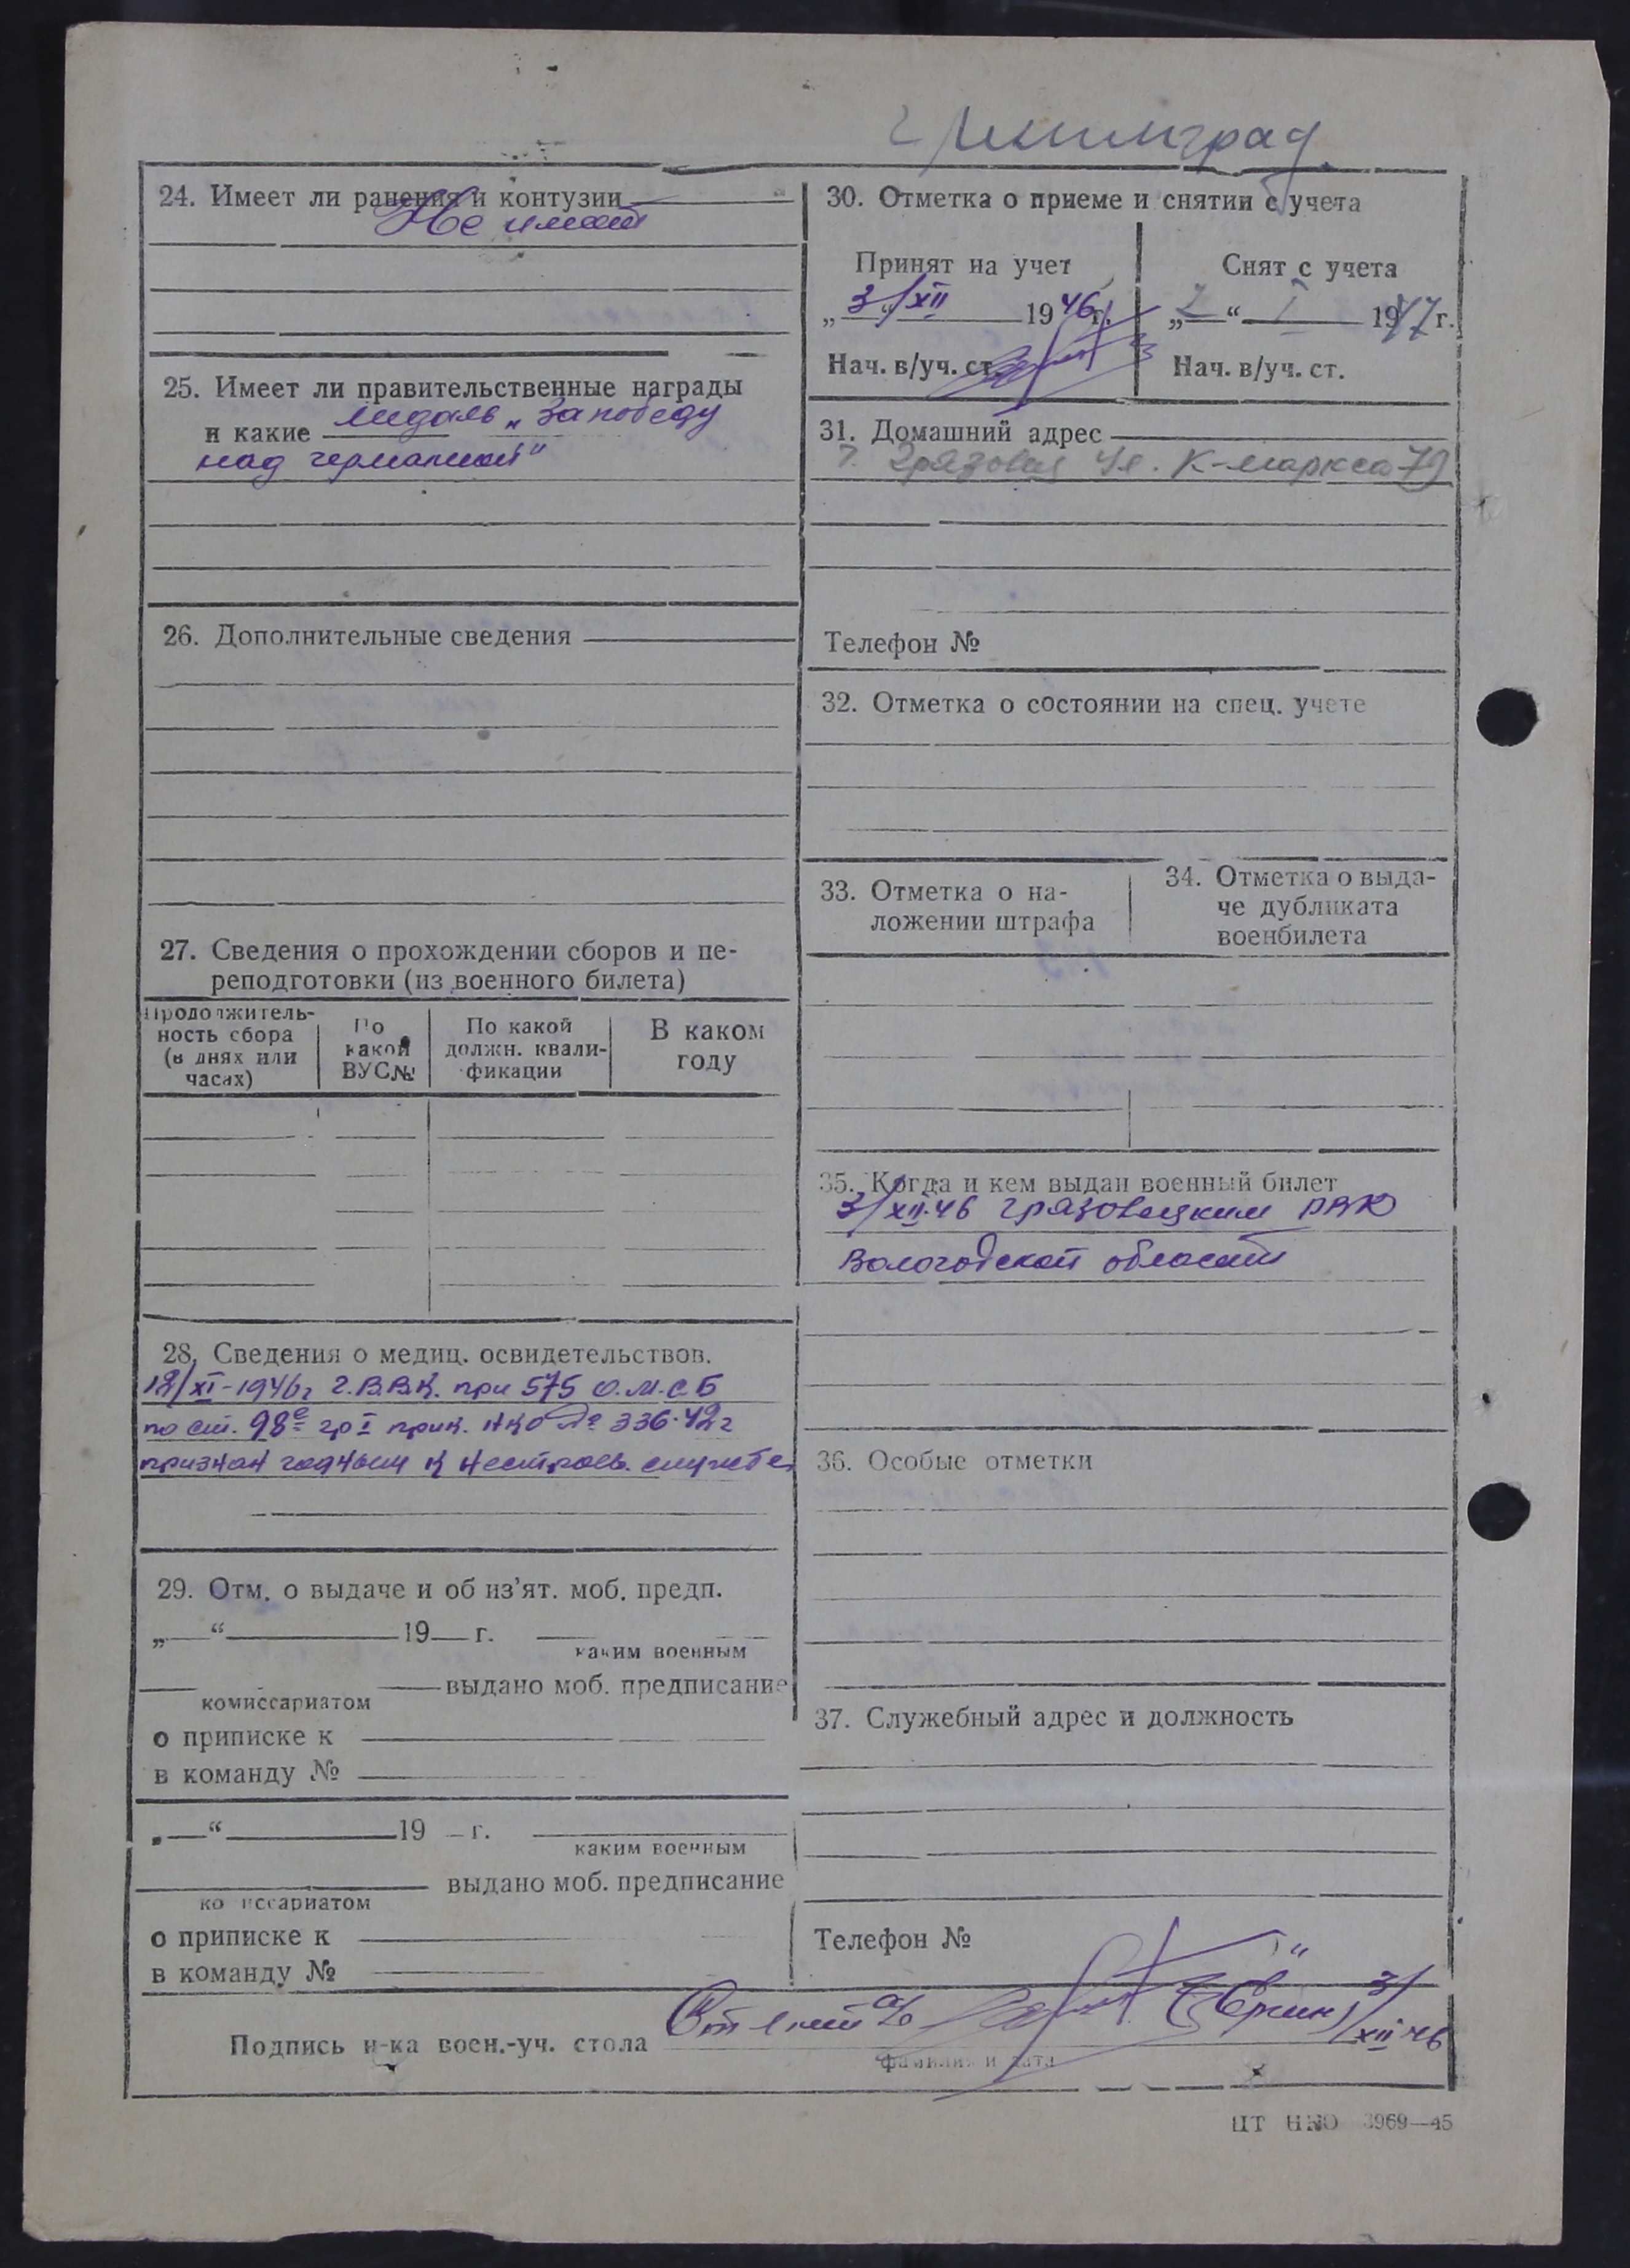 г Ленинград
24. Имеет ли ранения и контузии
Не имеет
25. Имеет ли правительственные награды
и какие медаль „За победу
над германией"
26. Дополнительные сведения
27. Сведения о прохождении сборов и пе-
реподготовки (из военного билета)
Продолжитель-
ность сбора
(в днях или
часах)
По
какой
ВУС №
По какой
должн. квали-
фикации
В каком
году
28. Сведения о медиц. освидетельствов.
12/XI-1946г Г.В.В.К. при 575 О.М.С.Б
по ст. 98е гр I прик. НКО № 336-42г
признан годным к нестроев. службе.
29. Отм. о выдаче и об из'ят. моб. предп.
„ “ 19 г.
каким военным
выдано моб. предписание
комиссариатом
о приписке к
в команду №
„ “ 19 г.
каким военным
выдано моб. предписание
комиссариатом
о приписке к
в команду №
30. Отметка о приеме и снятии с учета
Принят на учет
„3/“ XII 1946г.
Нач. в/уч. ст.
Снят с учета
„2“ I 1947г.
Нач. в/уч. ст.
31. Домашний адрес
г. Грязовец ул. К-маркса 79
Телефон №
32. Отметка о состоянии на спец. учете
33. Отметка о на-
ложении штрафа
34. Отметка о выда-
че дубликата
военбилета
35. Когда и кем выдан военный билет
3/XII-46 Грязовецким РВК
Вологодской области
36. Особые отметки
37. Служебный адрес и должность
Телефон №
Подпись н-ка воен.-уч. стола
3/XII 46
фамилия и дата
ЦТ НКО 3969—45